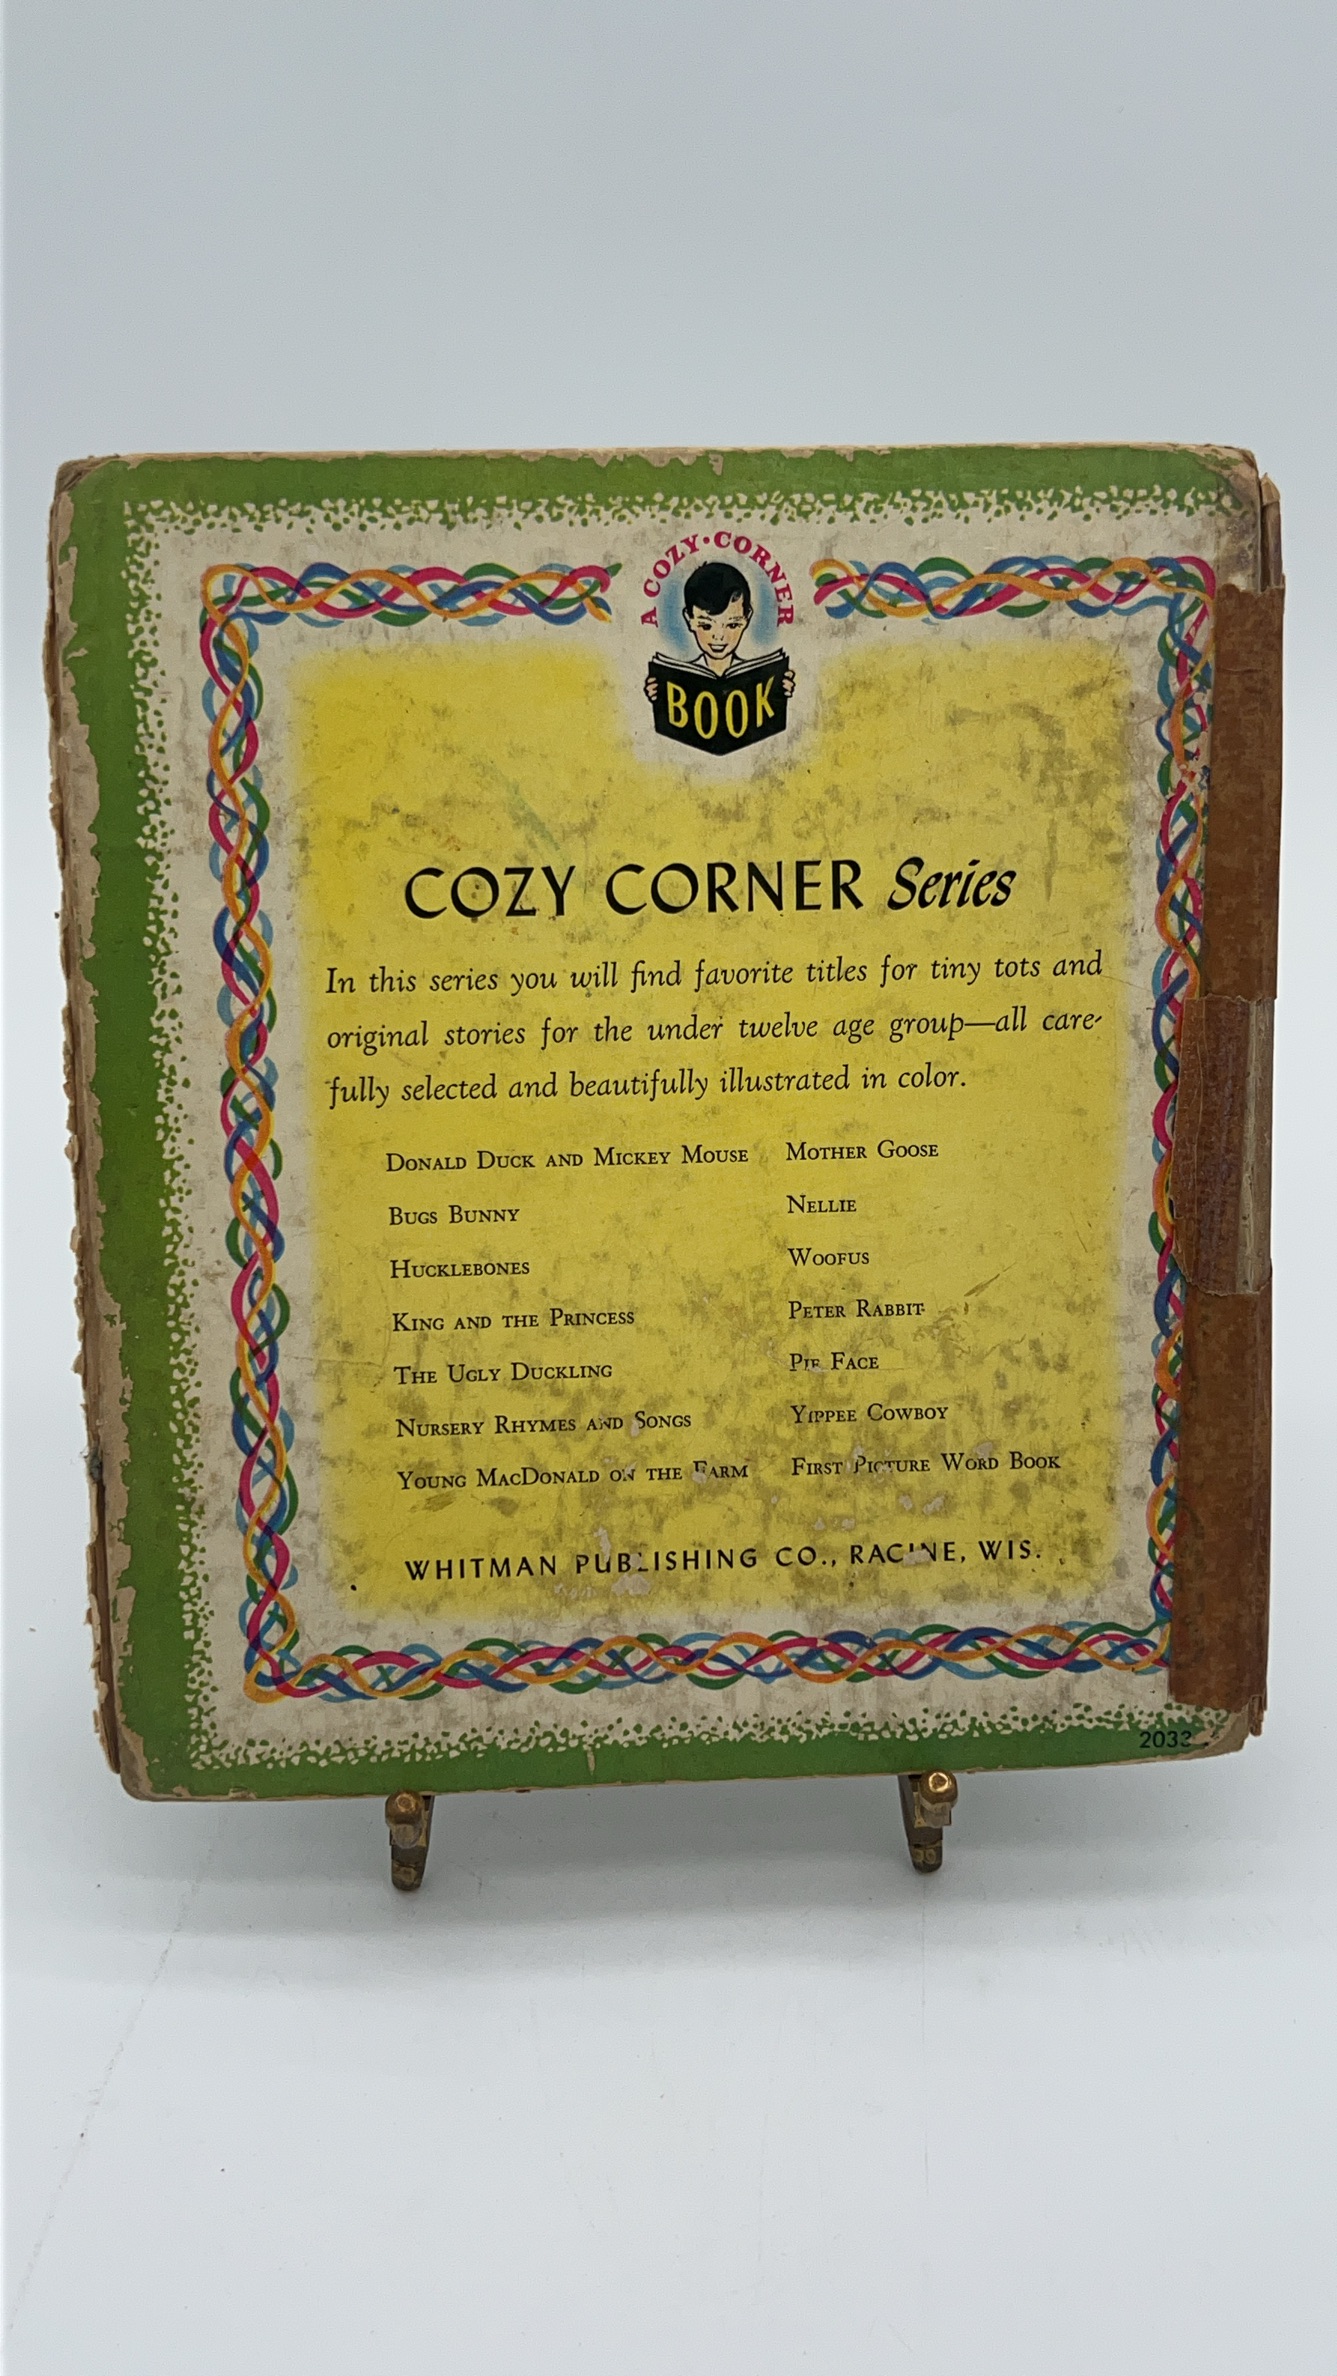 A COZY·CORNER
BOOK
COZY CORNER Series
In this series you will find favorite titles for tiny tots and
original stories for the under twelve age group—all care-
fully selected and beautifully illustrated in color.
DONALD DUCK AND MICKEY MOUSE
BUGS BUNNY
HUCKLEBONES
KING AND THE PRINCESS
THE UGLY DUCKLING
NURSERY RHYMES AND SONGS
YOUNG MACDONALD ON THE FARM
MOTHER GOOSE
NELLIE
WOOFUS
PETER RABBIT
PIE FACE
YIPPEE COWBOY
FIRST PICTURE WORD BOOK
WHITMAN PUBLISHING CO., RACINE, WIS.